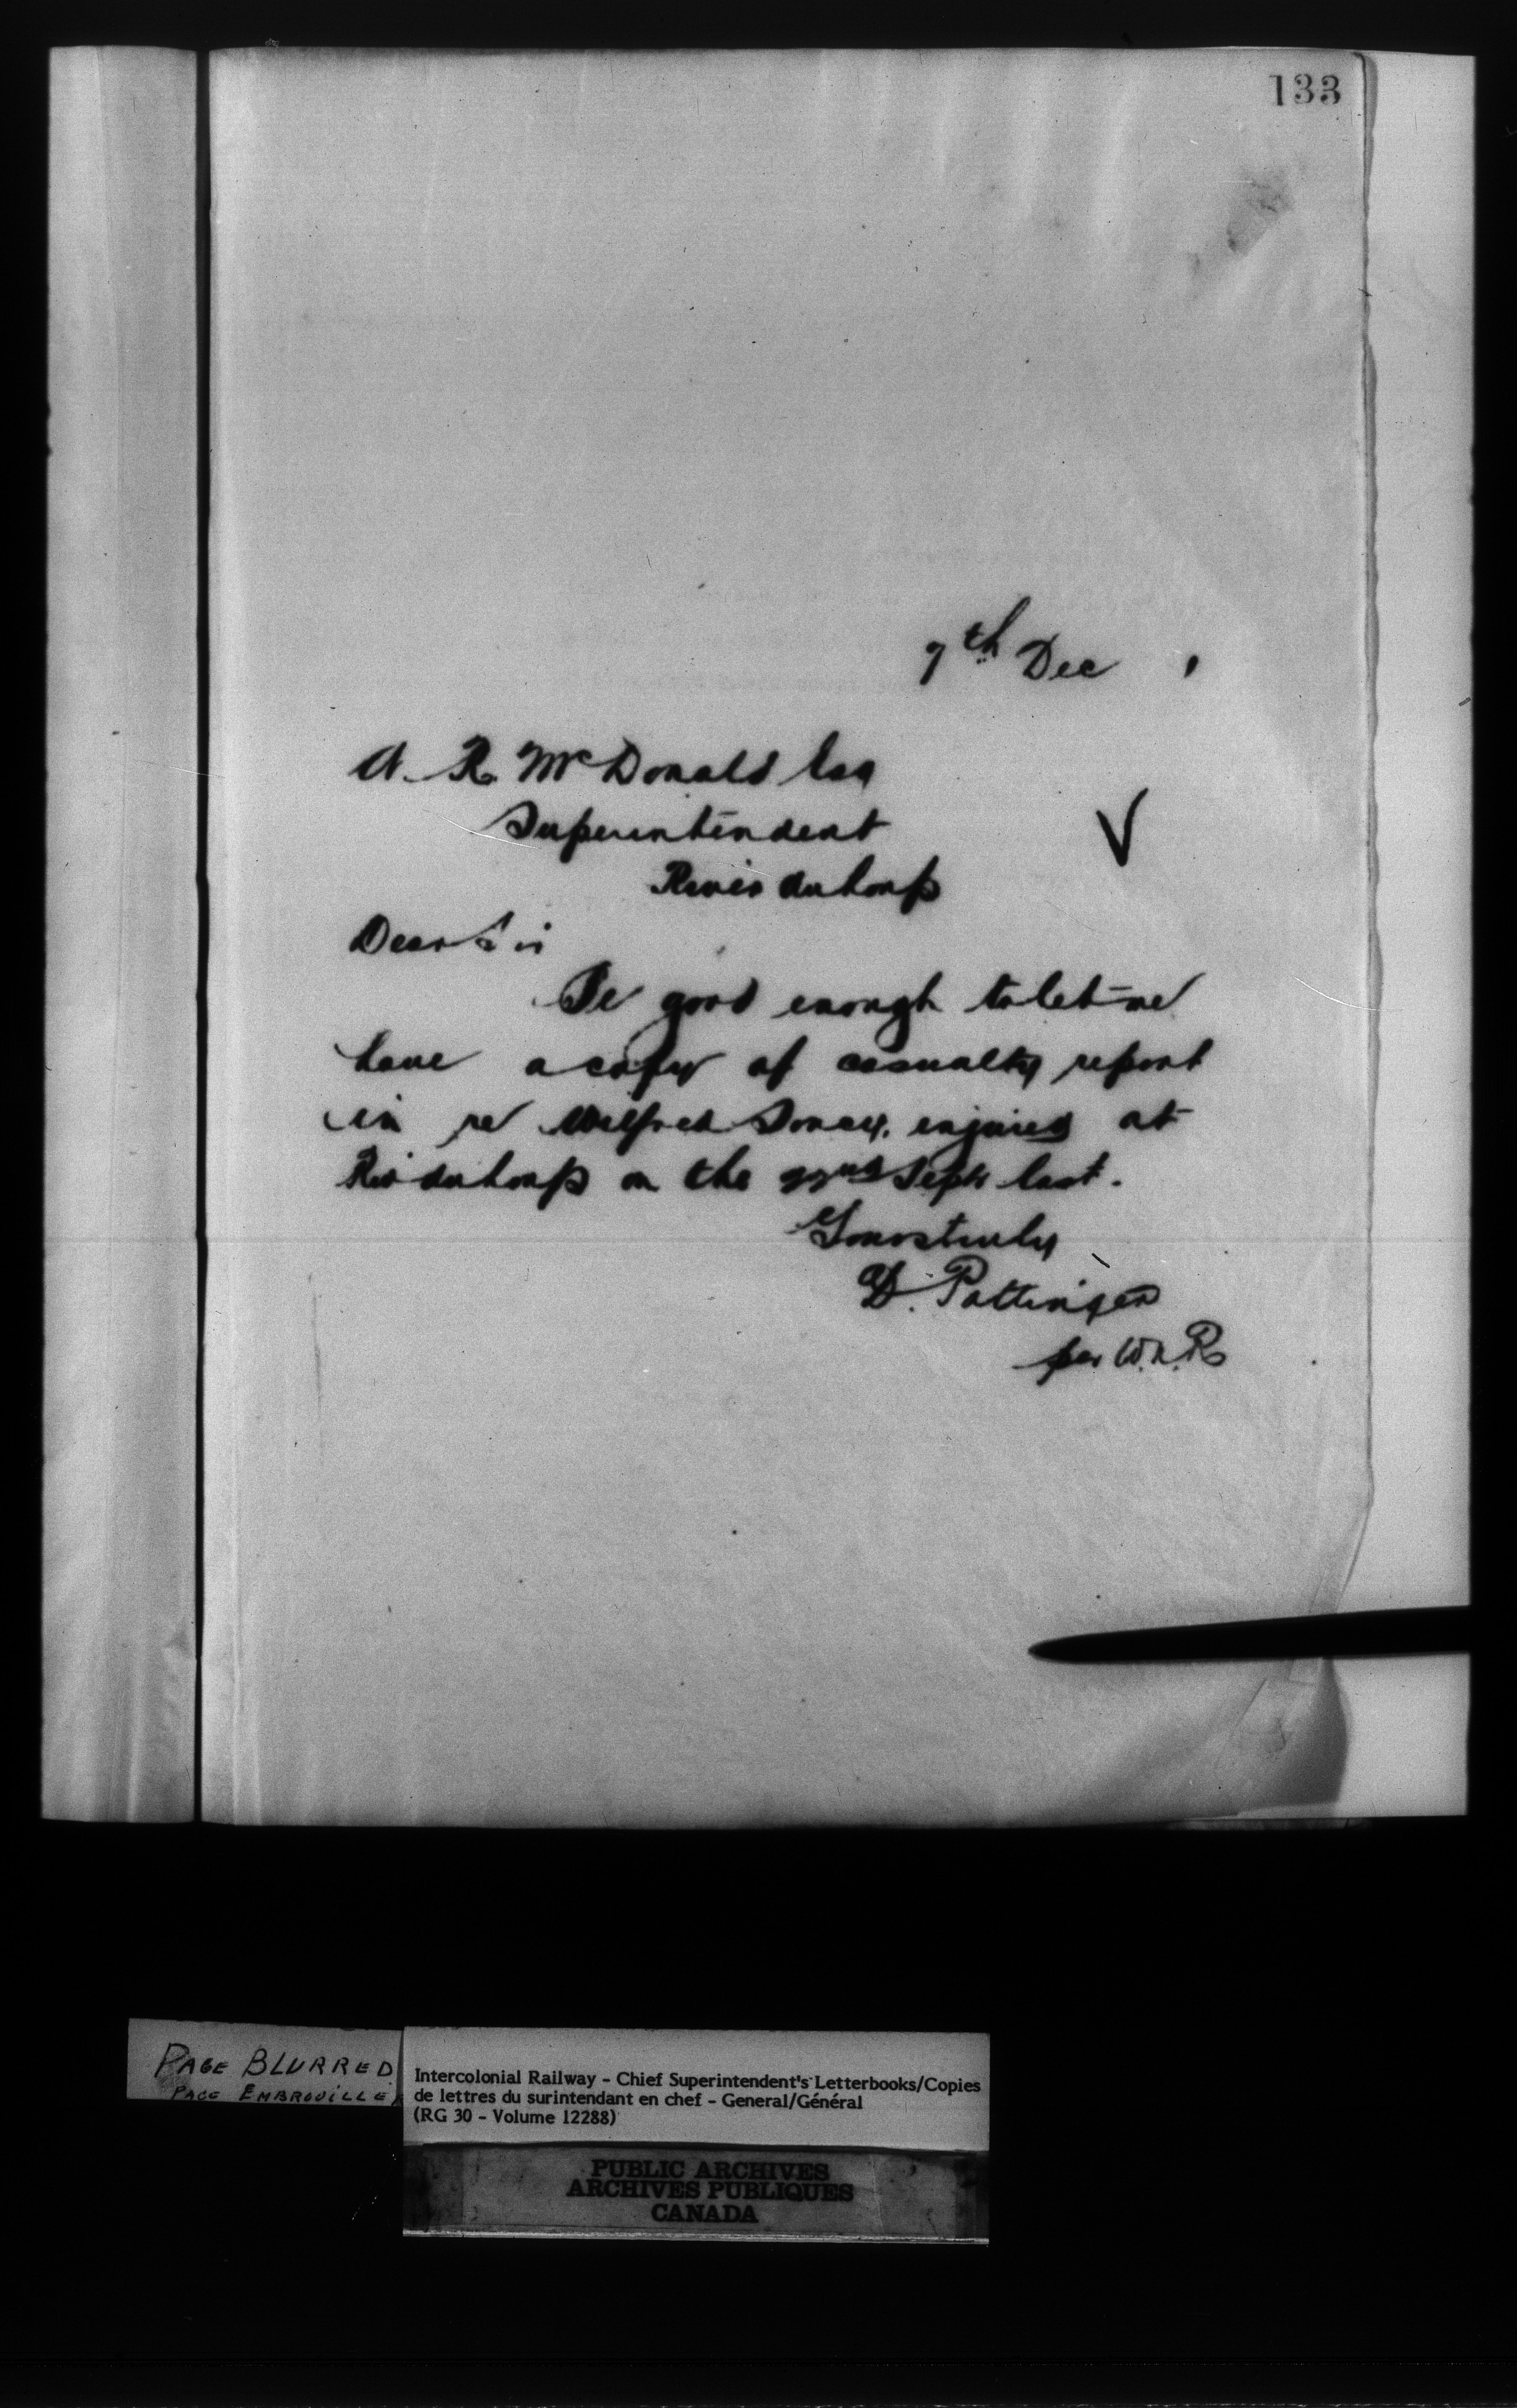 133
7th Dec
A. R. McDonald Esq
Superintendent
River du Loup
Dear Sir
Be good enough to let me
have a copy of casualty report
in re Wilfred injured at
Riv du Loup on the 22nd Sept last.
Yours truly
D. Pottinger
per W. R
PAGE BLURRED
PAGE EMBROUILLE
Intercolonial Railway - Chief Superintendent's Letterbooks/Copies
de lettres du surintendant en chef - General/Général
(RG 30 - Volume 12288)
PUBLIC ARCHIVES
ARCHIVES PUBLIQUES
CANADA